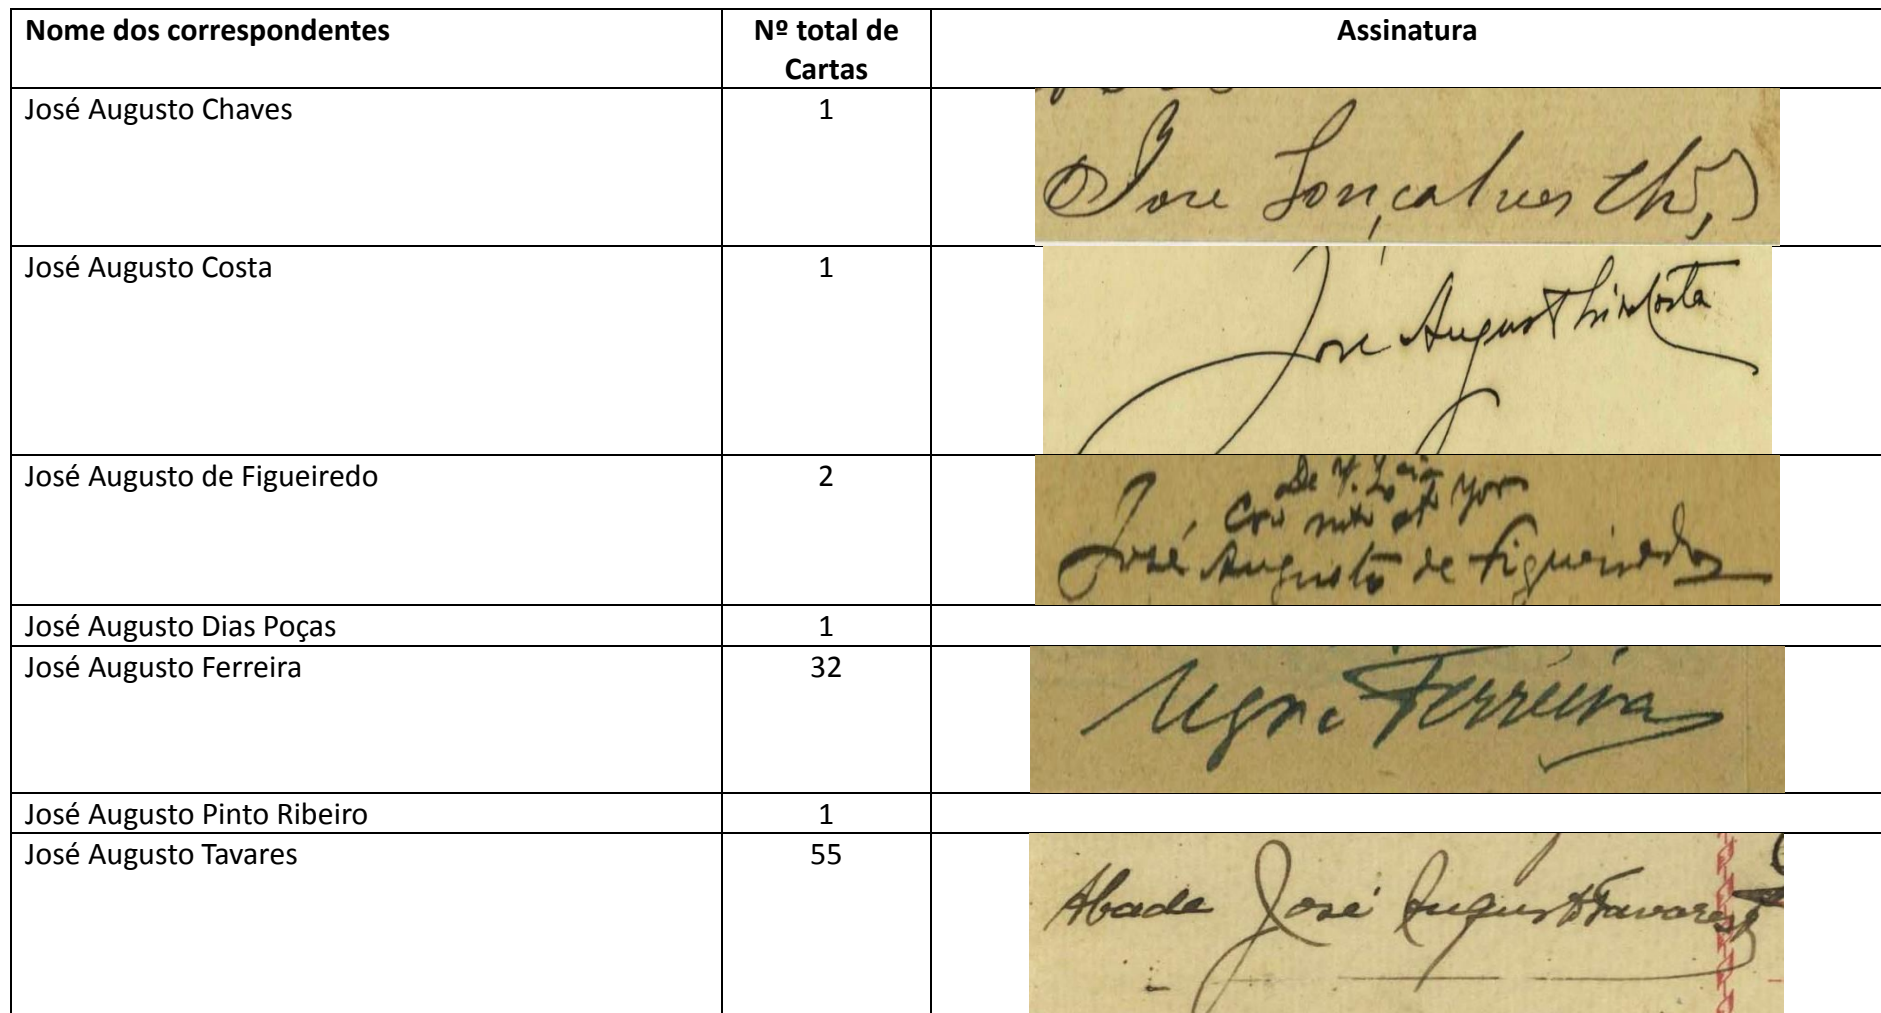 Nome dos correspondentes Nº total de Cartas Assinatura
José Augusto Chaves 1
José Gonçalves
José Augusto Costa 1
José Augusto Costa
José Augusto de Figueiredo 2
De V.
José Augusto de Figueiredo
José Augusto Dias Poças 1
José Augusto Ferreira 32
Ferreira
José Augusto Pinto Ribeiro 1
José Augusto Tavares 55
Abade José Augusto Tavares